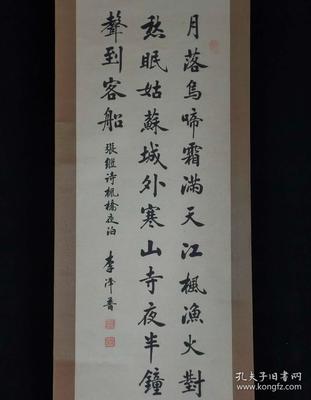 月落烏啼霜滿天江楓漁火對
愁眠姑蘇城外寒山寺夜半鐘
聲到客船
張继诗楓橋夜泊
李泽普
孔夫子旧书网